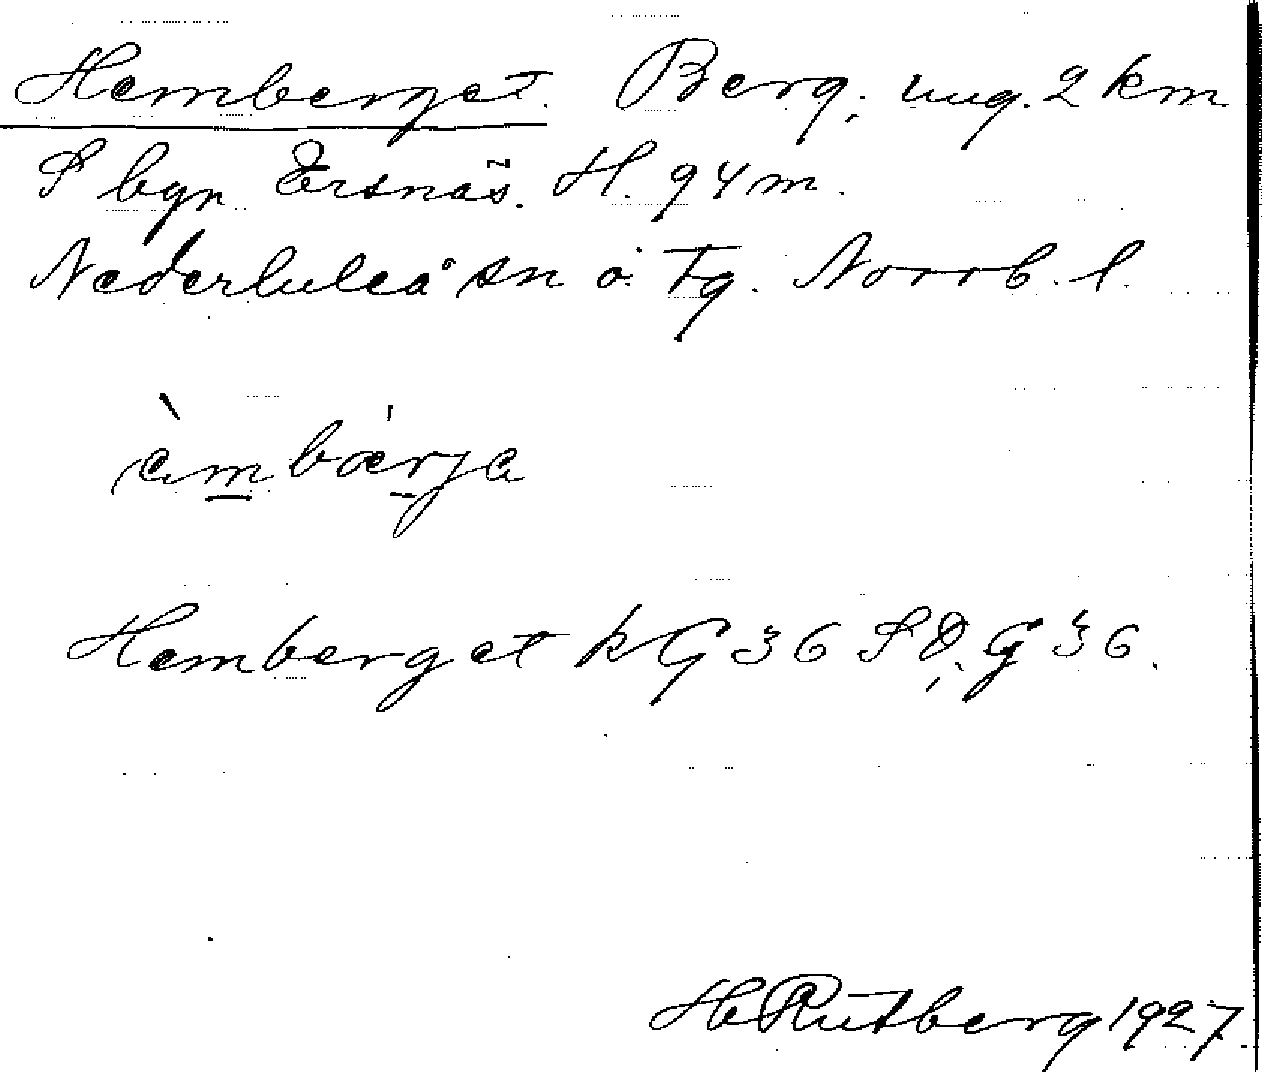 Hemberget. Berg, ung. 2 km
S byn Ersnäs. H. 94 m.
Nederluleå sn o. Tg. Norrb. l.
àmbærja
Hemberget kG 36 SO, G 36.
H Rutberg 1927